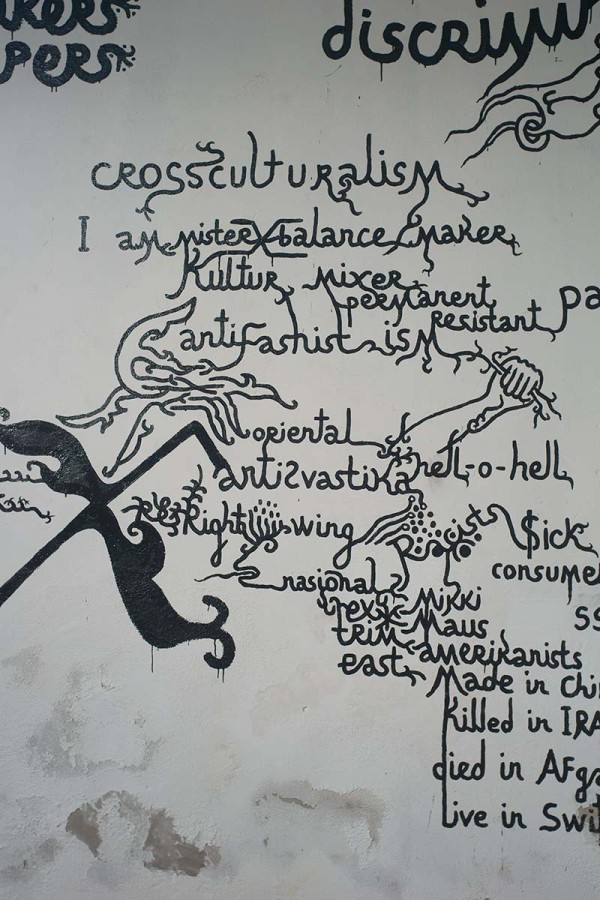 kers
pers
discrim
crossculturalism
I am mister X-balance maker
Kultur mixer
permanent
resistant
pa
antifashist ism
oriental
antisvastika hell-o-hell
Right wing
Racist $ick
consume
nasional
Mikki
ss
trim Maus
amerikanists
east
Made in Chi
Killed in IRA
died in Afga
Live in Swi